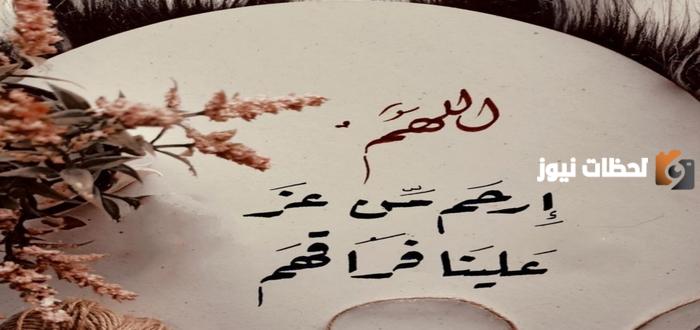 اللهمَّ
إِرحَم مَّن عَزَ
عَلينَا فرَاقهَم
لحظات نيوز